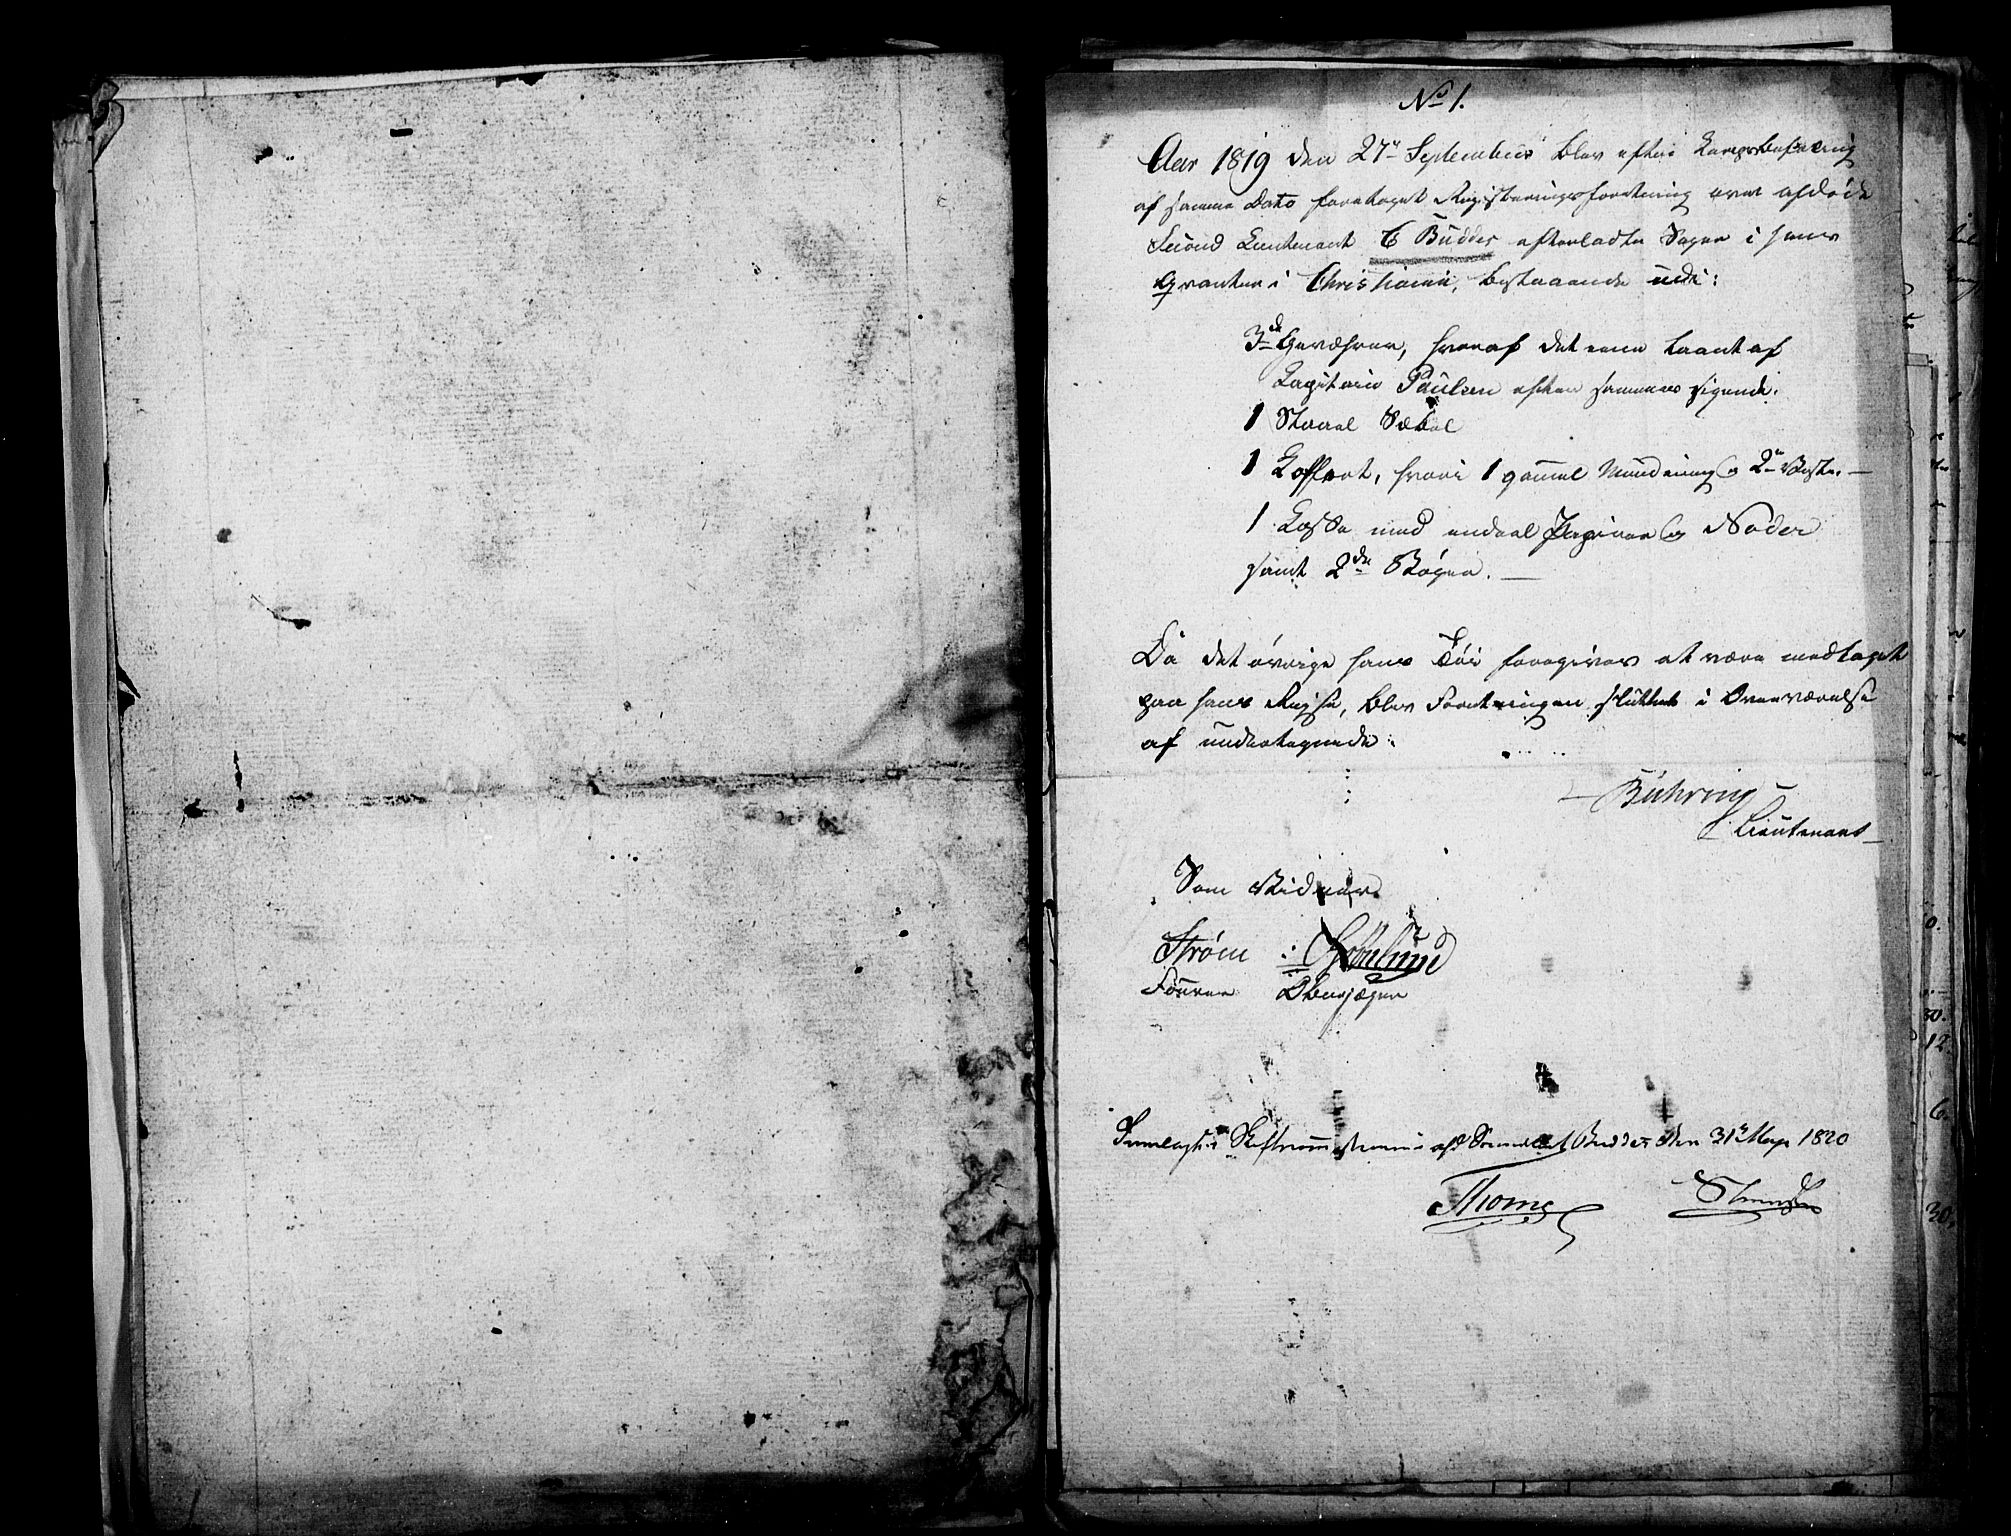 No 1.
Aar 1819 den 27de September blev efter Corpsbefaling
af samme Dato foretaget Registeringsforretning over afdøde
Second Lieutenant C Buddes efterladte Sager i hans
Qvarteer i Christiania, bestaaende udi:
3de Geværer, hvoraf det eene laant af
Capitain Paulsen efter sammes sigende.
1 Staael Sabel
1 Koffert, hvori 1 gammel Mundering og 2de Veste. —
1 Kasse med endeel Papirer og Noder
samt 2de Bøger. —
Da det øvrige hans Tøi foregives at være medtaget
paa hans Rejse, blev Forretningen sluttet i Overværelse
af undertegnede.
Bühring
Lieutenant
Som Vidner.
Strøm
Fourer Oberjæger
Fremlagt i Skiftesamlingen i afd Second Lt Buddes Boe den 31te May 1820
Thorne